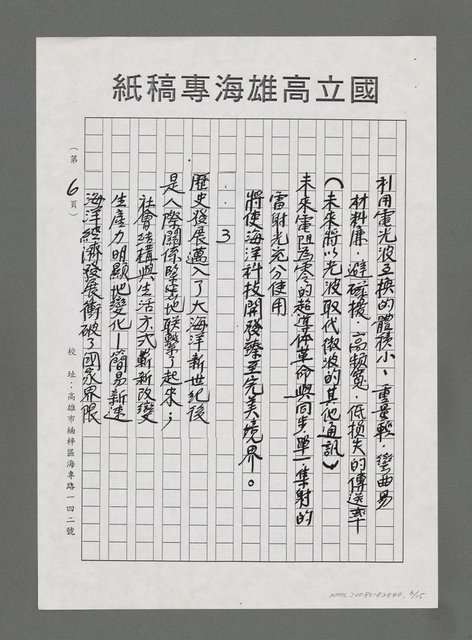 國立高雄海專稿紙
利用電光波互換的體積小、重量輕、彎曲易
材料廉、避磁擾、高頻寬、低損失的傳送率
（未來將以光波取代微波的其他通訊）
未來電阻為零的超導体革命與同步、單一集射的
雷射光充分使用
將使海洋科技開發臻至完美境界。
3
歷史發展邁入了大海洋新世紀後
是人際關係緊密地联繫了起來；
社會結構與生活方式嶄新改變
生產力明顯地變化—簡易新速
海洋經濟發展衝破了國家界限
（第 6 頁）
校 址：高雄市楠梓區海專路一四二號
NMTL20080182040. 6/15